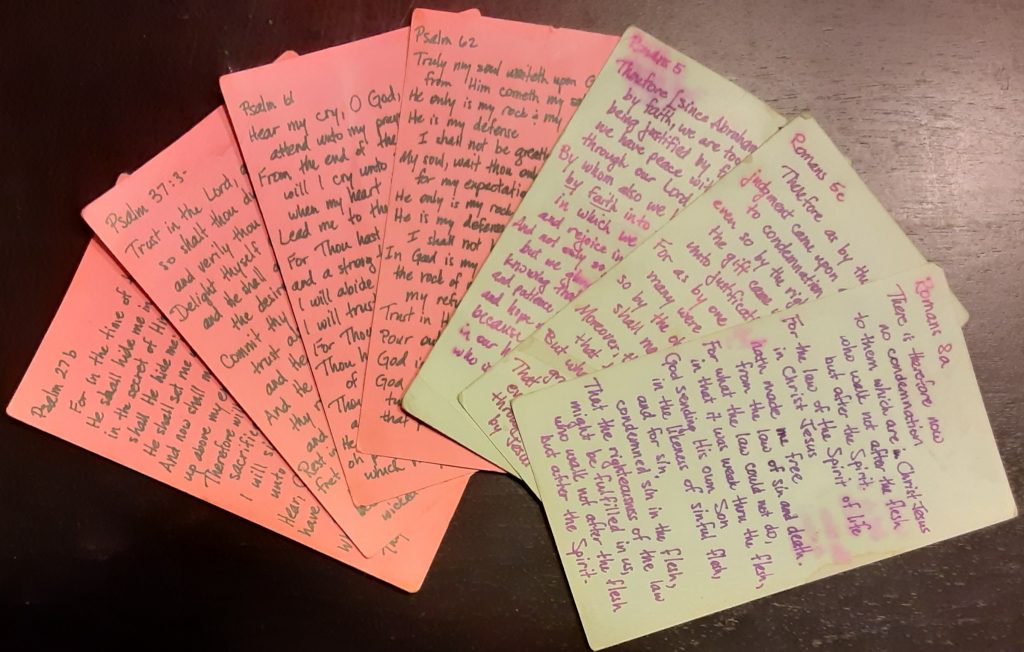 Psalm 27b
For in the time of
He shall hide me in
in the secret of His
shall He hide me
He shall set me
And now shall m
up above my e
Therefore will
sacrific
I will s
unto
Hear,
have
Psalm 37:3-
Trust in the Lord,
so shalt thou d
and verily thou
Delight thyself
and He shall
the desir
Commit th
trust a
and He
And He
thy
and
Rest
fret
wicked
Psalm 61
Hear my cry, O God,
attend unto my pray
From the end of the
will I cry unto
when my heart
Lead me to th
For Thou hast
and a strong
I will abide
I will trus
For Thou
Thou h
of
Thou
which
Psalm 62
Truly my soul waiteth upon G
from Him cometh my sa
He only is my rock & my
He is my defense
I shall not be great
My soul, wait thou only
for my expectati
He only is my rock
He is my defense
I shall not
In God is my
the rock of
my refu
Trust in H
Pour ou
God i
God
to
that
Romans 5
Therefore [since Abraham
by faith, we are too]
being justified by f
we have peace wit
through our Lord
By whom also we
by faith into
in which we
and rejoice
And not only so
but we al
knowing tha
and patience
and hope
because
in our
who
Romans 5c
Therefore as by th
judgment came upon
to condemnation
even so by the rig
the gift came
unto justificat
For as by one
many were
so by the
shall m
Moreover,
that
But wh
That
even
thro
by Jesus
Romans 8a
There is therefore now
no condemnation in Christ Jesus
to them which are in
who walk not after the flesh
but after the Spirit.
For the law of the Spirit of life
in Christ Jesus
hath made me free
from the law of sin and death.
For what the law could not do,
in that it was weak thru the flesh,
God sending His own Son
in the likeness of sinful flesh,
and for sin,
condemned sin in the flesh,
That the righteousness of the law
might be fulfilled in us,
who walk not after the flesh
but after the Spirit-